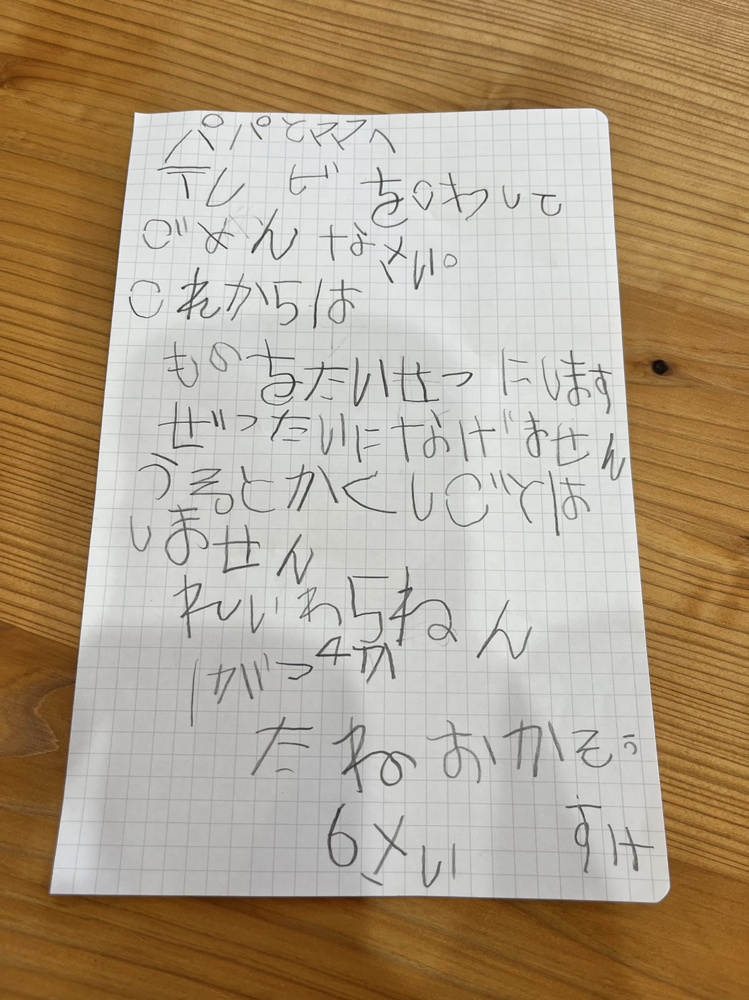 パパとママへ
テレビをこわして
ごめんなさい。
これからは
ものをたいせつにします
ぜったいになげません
うそとかくしごとは
しません
れいわ5ねん
1がつ4か
たねおかそう
すけ
6さい